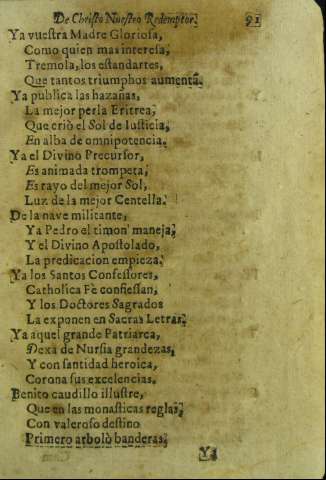 De Christo Nuestro Redemptor. 91
Ya vuestra Madre Gloriosa,
Como quien mas interesa,
Tremola, los estandartes,
Que tantos triumphos aumenta.
Ya publica las hazañas,
La mejor perla Eritrea,
Que criò el Sol de Iusticia,
En alba de omnipotencia.
Ya el Divino Precursor,
Es animada trompeta,
Es rayo del mejor Sol,
Luz de la mejor Centella.
De la nave militante,
Ya Pedro el timon maneja,
Y el Divino Apostolado,
La predicacion empieza.
Ya los Santos Confessores,
Catholica Fè confiessan,
Y los Doctores Sagrados
La exponen en Sacras Letras.
Ya aquel grande Patriarca,
Dexa de Nursia grandezas,
Y con santidad heroica,
Corona sus excelencias.
Benito caudillo illustre,
Que en las monasticas reglas,
Con valeroso destino
Primero arbolò banderas.
Ya